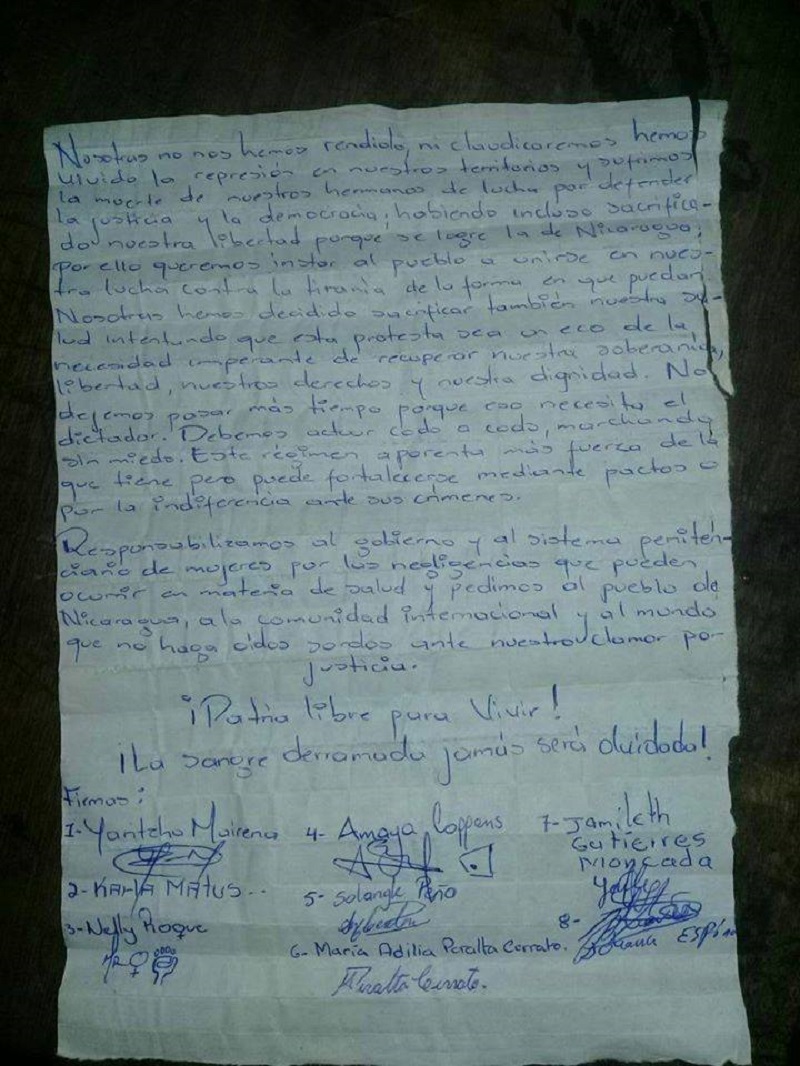 Nosotras no nos hemos rendido, ni claudicaremos hemos
vivido la represión en nuestros territorios y sufrimos
la muerte de nuestros hermanos de lucha por defender
la justicia y la democracia, habiendo incluso sacrifica-
do nuestra libertad porque se logre la de Nicaragua,
por ello queremos instar al pueblo a unirse en nues-
tra lucha contra la tiranía de la forma en que puedan.
Nosotras hemos decidido sacrificar también nuestra sa-
lud intentando que esta protesta sea un eco de la
necesidad imperante de recuperar nuestra soberanía,
libertad, nuestros derechos y nuestra dignidad. No
dejemos pasar más tiempo porque eso necesita el
dictador. Debemos actuar codo a codo, marchando
sin miedo. Este régimen aparenta más fuerza de la
que tiene pero puede fortalecerse mediante pactos o
por la indiferencia ante sus crímenes.
Responsabilizamos al gobierno y al sistema peniten-
ciario de mujeres por las negligencias que pueden
ocurrir en materia de salud y pedimos al pueblo de
Nicaragua, a la comunidad internacional y al mundo
que no haga oídos sordos ante nuestro clamor por
justicia.
¡Patria libre para Vivir!
¡La sangre derramada jamás será olvidada!
Firmas:
1- Yaritzha Mairena
2- Karla Matus..
3- Nelly Roque
4- Amaya Coppens
5- Solange Peño
6- María Adilia Peralta Cerrato.
Peralta Cerrato.
7- Jamileth
Gutierres
Moncada
8-